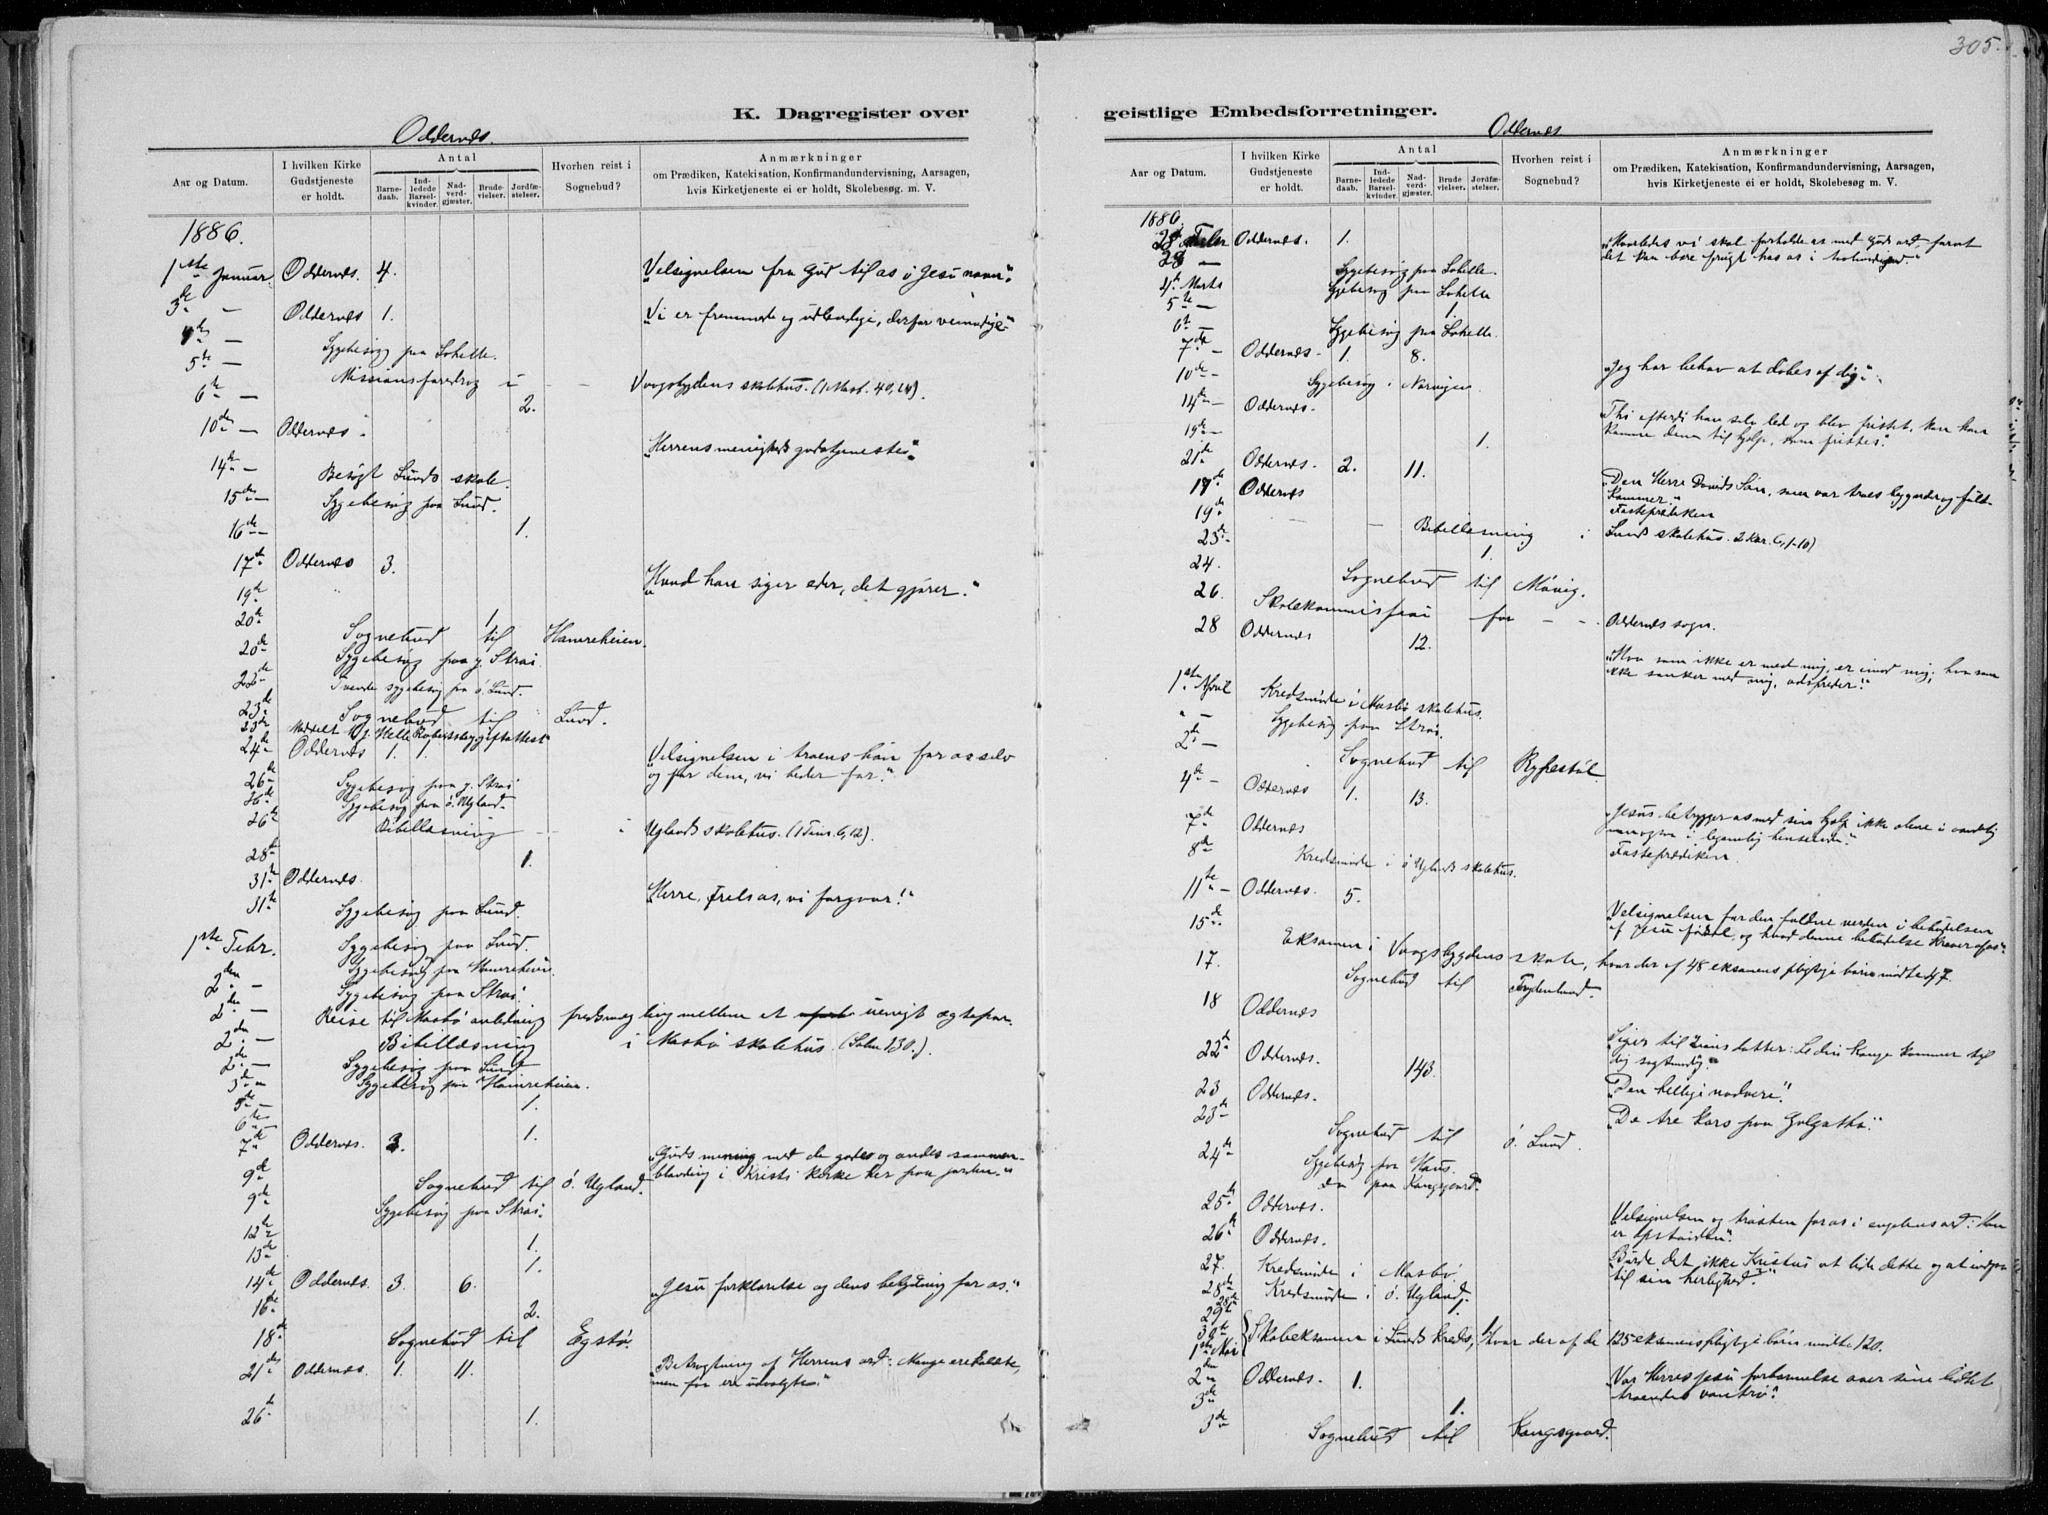 305.
K. Dagregister over
Oddernes.
Aar og Datum.
I hvilken Kirke Gudstjeneste er holdt.
Antal
Barnedaab.
Indledede Barselkvinder.
Nadverdgjæster.
Brudevielser.
Jordfæstelser.
Hvorhen reist i Sognebud?
Anmærkninger
om Prædiken, Katekisation, Konfirmandundervisning, Aarsagen,
hvis Kirketjeneste ei er holdt, Skolebesøg m. V.
1886.
1ste Januar. Oddernes. 4. "Velsignelsen fra Gud til os i Jesu navn".
3de — Oddernes 1. "Vi er fremmede og udlændige, derfor
de —
5te — Sygebesøg paa
6te — Missionsforedrag i — — Vaagsbygdens skolehus.
2.
10de — Oddernes
14de — "Herrens menigheds gudstjeneste"
15de — Besøgt Lunds skole.
Sygebesøg paa Lund.
16de — 1.
17de Oddernes 3.
19de "Hvad han siger eder, det gjører."
20de 1.
20de Sognebud til Hamreheien.
22de Sygebesøg paa Strai.
Tvende sygebesøg paa ø. Lund.
23de Sognebud til Lund.
23de
24de Oddernes 1. 1. "Velsignelsen i troens bøn for os selv
26de Sygebesøg paa Strai og for dem, vi beder for."
26de Sygebesøg paa ø. Ugland.
26de Bibellæsning — i Uglands skolehus. (1 Tim. 6,12).
28de 1.
31te Oddernes.
31te Sygebesøg paa Lund. "Herre, frels os, vi forgaar!"
1ste Febr. Sygebesøg paa Lund.
2den — Sygebesøg paa Hamreheien.
2den — Sygebesøg paa Strai.
2den — Reise til Mosbø anledning fredsmægling mellem et uenigt ægtepar.
2den — Bibellæsning i Mosbø skolehus. (Salm 130.).
3de — Sygebesøg paa Lund
Sygebesøg paa Hamreheien.
5te — 1.
6te
7de Oddernes. 3. 1.
9de "Guds mening med de godes og ondes sammen-
blanding i Kristi kirke her paa jorden."
9de Sognebud til ø. Ugland.
Sygebesøg paa Strai.
12te
13de 1.
14de Oddernes. 3. 6. 1. "Jesu forklarelse og dens betydning for os."
16de 2.
18de Sognebud til Egstø.
21de Oddernes. 1. 11. "Betragtning af Herrens ord: Mange ere kaldte,
men faa ere udvalgte."
26de 1.
geistlige Embedsforretninger.
Oddernes
Aar og Datum.
I hvilken Kirke Gudstjeneste er holdt.
Antal
Barnedaab.
Indledede Barselkvinder.
Nadverdgjæster.
Brudevielser.
Jordfæstelser.
Hvorhen reist i Sognebud?
Anmærkninger
om Prædiken, Katekisation, Konfirmandundervisning, Aarsagen,
hvis Kirketjeneste ei er holdt, Skolebesøg m. V.
1886
28 Febr Oddernes. 1. "Hvorledes vi skal forholde os med Guds ord, forat
28 — det kan bære frugt hos os i
4de Marts Sygebesøg paa
5te — Sygebesøg paa
1.
6te — Sygebesøg paa
7de — Oddernes — 1. 8.
10de — Sygebesøg i "Jeg har behov at døbes af dig".
14de — Oddernes.
19de — 1. "Thi efterdi han selv led og blev fristet, kan han
komme dem til hjælp, som fristes".
21de Oddernes. 2. 11.
17de Oddernes "Den Herre Davids Søn, som var
19de Fasteprædiken
23de — Bibellæsning i Lunds skolehus. 2 Kor. 6, 1-10)
24. 1.
26. Sognebud til Møvig.
28 Skolekommission for — — Oddernes sogn.
Oddernes 12.
"Hvo som ikke er med mig, er imod mig; hvo som
ikke sanker med mig, adspreder."
1ste April Kredsmøde i Mosbø skolehus.
" — Sygebesøg paa Strai.
2de — Sognebud til Ryfestøl
4de — Oddernes 1. 13.
7de Oddernes "Jesus betrygger os med sin hjælp ikke alene i aandelig
men ogsaa i legemlig henseende."
8de Kredsmøde i ø Uglands skolehus. Fasteprædiken.
11te — Oddernes. 5.
15de "Velsignelsen for den faldne verden i
af Jesu fødsel, og hvad denne kræver af os"
17. Eksamen i Vaagsbygdens skole, hvor der af 48 eksamenspligtige børn mødte 47.
Sognebud til
18 Oddernes
22de Oddernes. 143. "Siger til Zions datter: Se din konge kommer til
dig sagtmodig."
23 Oddernes. "Den hellige nadvere".
23de Sognebud til ø. Lund. "De tre kors paa Golgatha".
24de Sygebesøg paa Haus.
do paa Kongsgaard.
25de Oddernes.
26de Oddernes. "Velsignelsen og trøsten for os i engelens ord: Han
er opstanden".
27. Kredsmøde i Mosbø. "Burde det ikke Kristus at lide dette og at indgaa
28de Kredsmøde i ø. Ugland. til sin herlighed."
29de 1.
30te
1ste Mai Skoleeksamen i Lunds kreds, hvor der af de 125 eksamenspligtige børn mødte 120.
2den Oddernes. 1. "Vor Herres Jesu forbarmelse over sine lidet
troendes vantro".
3de 1.
3de Sognebud til Kongsgaard.